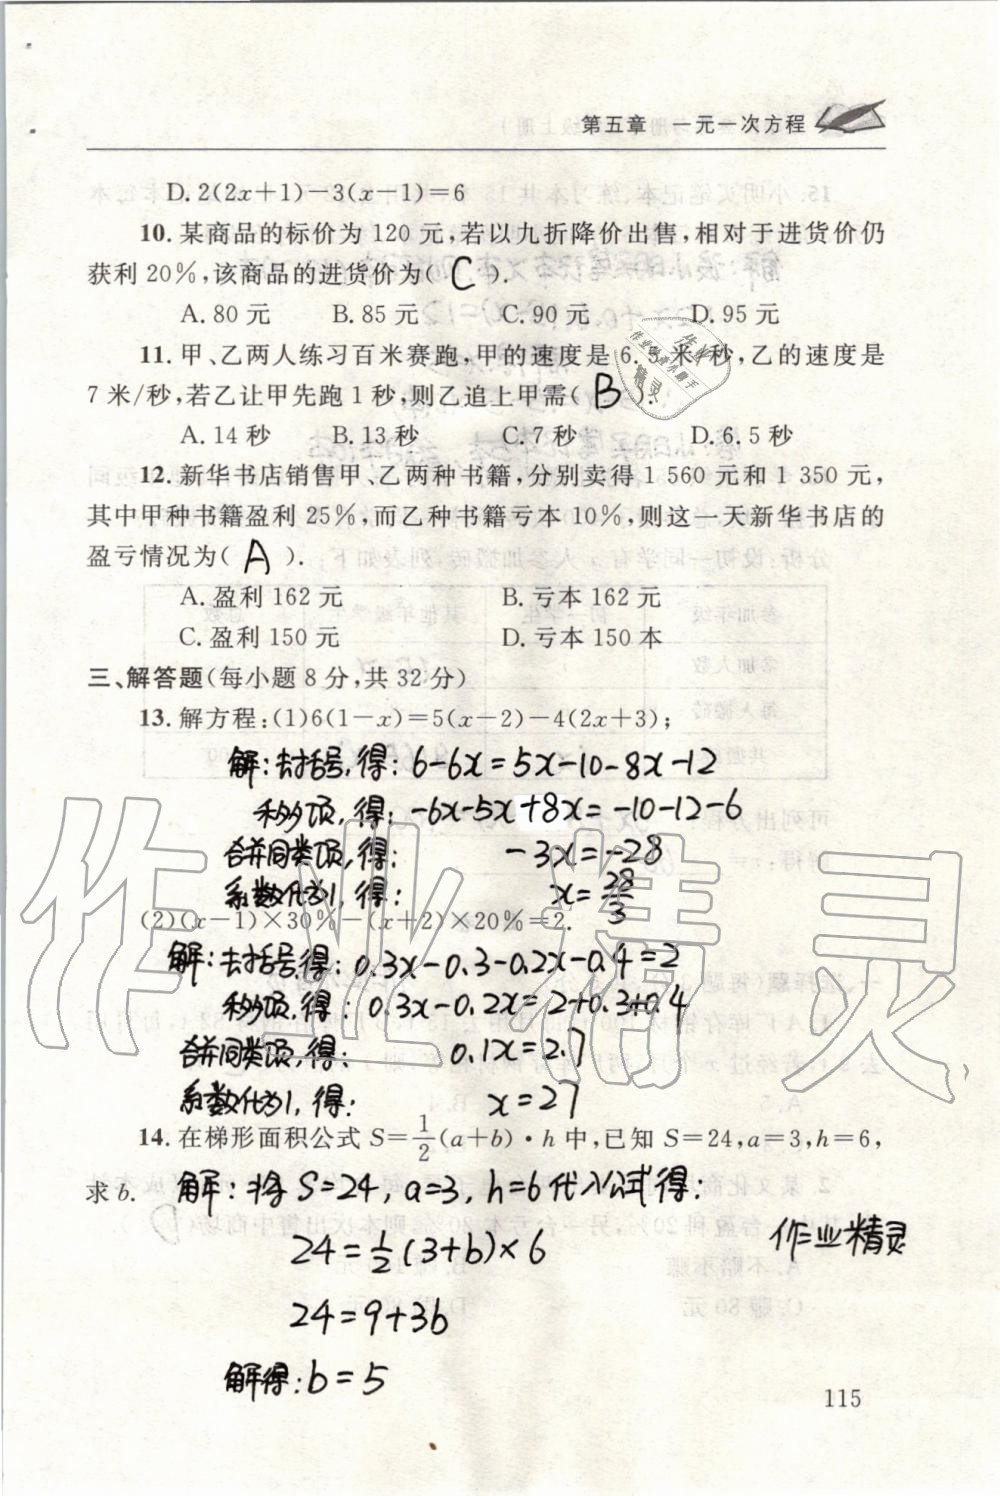 第五章 一元一次方程
D. 2(2x+1)-3(x-1)=6
10. 某商品的标价为 120 元,若以九折降价出售,相对于进货价仍
获利 20%,该商品的进货价为( C ).
A. 80 元 B. 85 元 C. 90 元 D. 95 元
11. 甲、乙两人练习百米赛跑,甲的速度是 6.5 米/秒,乙的速度是
7 米/秒,若乙让甲先跑 1 秒,则乙追上甲需( B ).
A. 14 秒 B. 13 秒 C. 7 秒 D. 6.5 秒
12. 新华书店销售甲、乙两种书籍,分别卖得 1 560 元和 1 350 元,
其中甲种书籍盈利 25%,而乙种书籍亏本 10%,则这一天新华书店的
盈亏情况为( A ).
A. 盈利 162 元 B. 亏本 162 元
C. 盈利 150 元 D. 亏本 150 本
三、解答题(每小题 8 分,共 32 分)
13. 解方程:(1)6(1-x)=5(x-2)-4(2x+3);
解:去括号,得:6-6x=5x-10-8x-12
移项,得:-6x-5x+8x=-10-12-6
合并同类项,得: -3x=-28
系数化为1,得: x=28/3
(2)(x-1)×30%-(x+2)×20%=2.
解:去括号,得:0.3x-0.3-0.2x-0.4=2
移项,得:0.3x-0.2x=2+0.3+0.4
合并同类项,得: 0.1x=2.7
系数化为1,得: x=27
14. 在梯形面积公式 S=1/2(a+b)·h 中,已知 S=24,a=3,h=6,
求 b. 解:将 S=24,a=3,h=6代入公式得:
24=1/2(3+b)×6
作业精灵
24=9+3b
解得:b=5
115
作业精灵